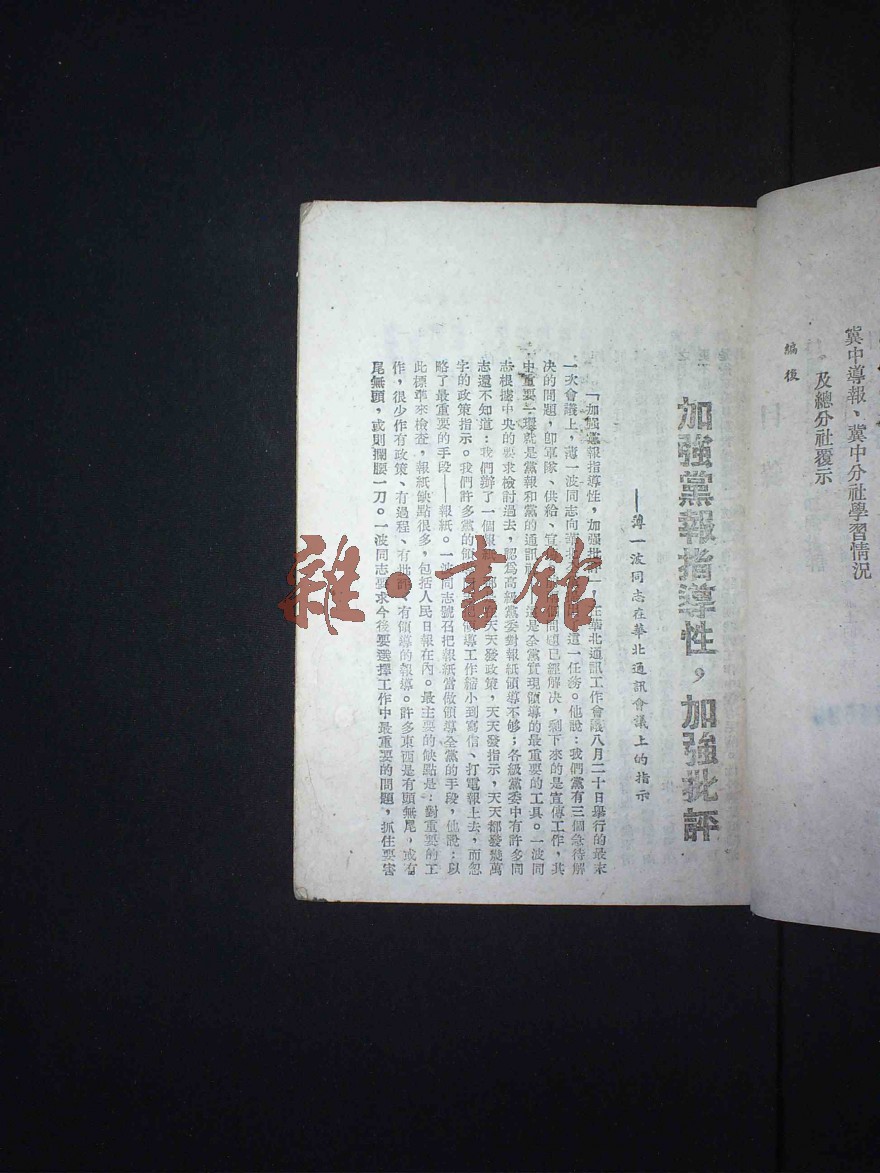 冀中導報、冀中分社學習情況
。及總分社覆示
編後
加強黨報指導性，加強批評
——薄一波同志在華北通訊會議上的指示
「加強黨報指導性，加強批
華北通訊工作會議八月二十日舉行的最末
一次會議上，薄一波同志向華北
這一任務。他說：我們黨有三個急待解
決的問題，卽軍隊、供給、宣
問題已經解決，剩下來的是宣傳工作，其
中重要一環就是黨報和黨的通訊社
是全黨實現領導的最重要的工具。一波同
志根據中央的要求檢討過去，認爲高級黨委對報紙領導不够；各級黨委中有許多同
志還不知道：我們辦了一個報紙，
天天發政策，天天發指示，天天都發幾萬
字的政策指示。我們許多黨的領
領導工作縮小到寫信、打電報上去，而忽
略了最重要的手段——報紙。一波同志號召把報紙當做領導全黨的手段，他說：以
此標準來檢查，報紙缺點很多，包括人民日報在內。最主要的缺點是：對重要的工
作，很少作有政策、有過程、有批評、有領導的報導。許多東西是有頭無尾，或有
尾無頭，或則攔腰一刀。一波同志要求今後要選擇工作中最重要的問題，抓住要害
雜·書館